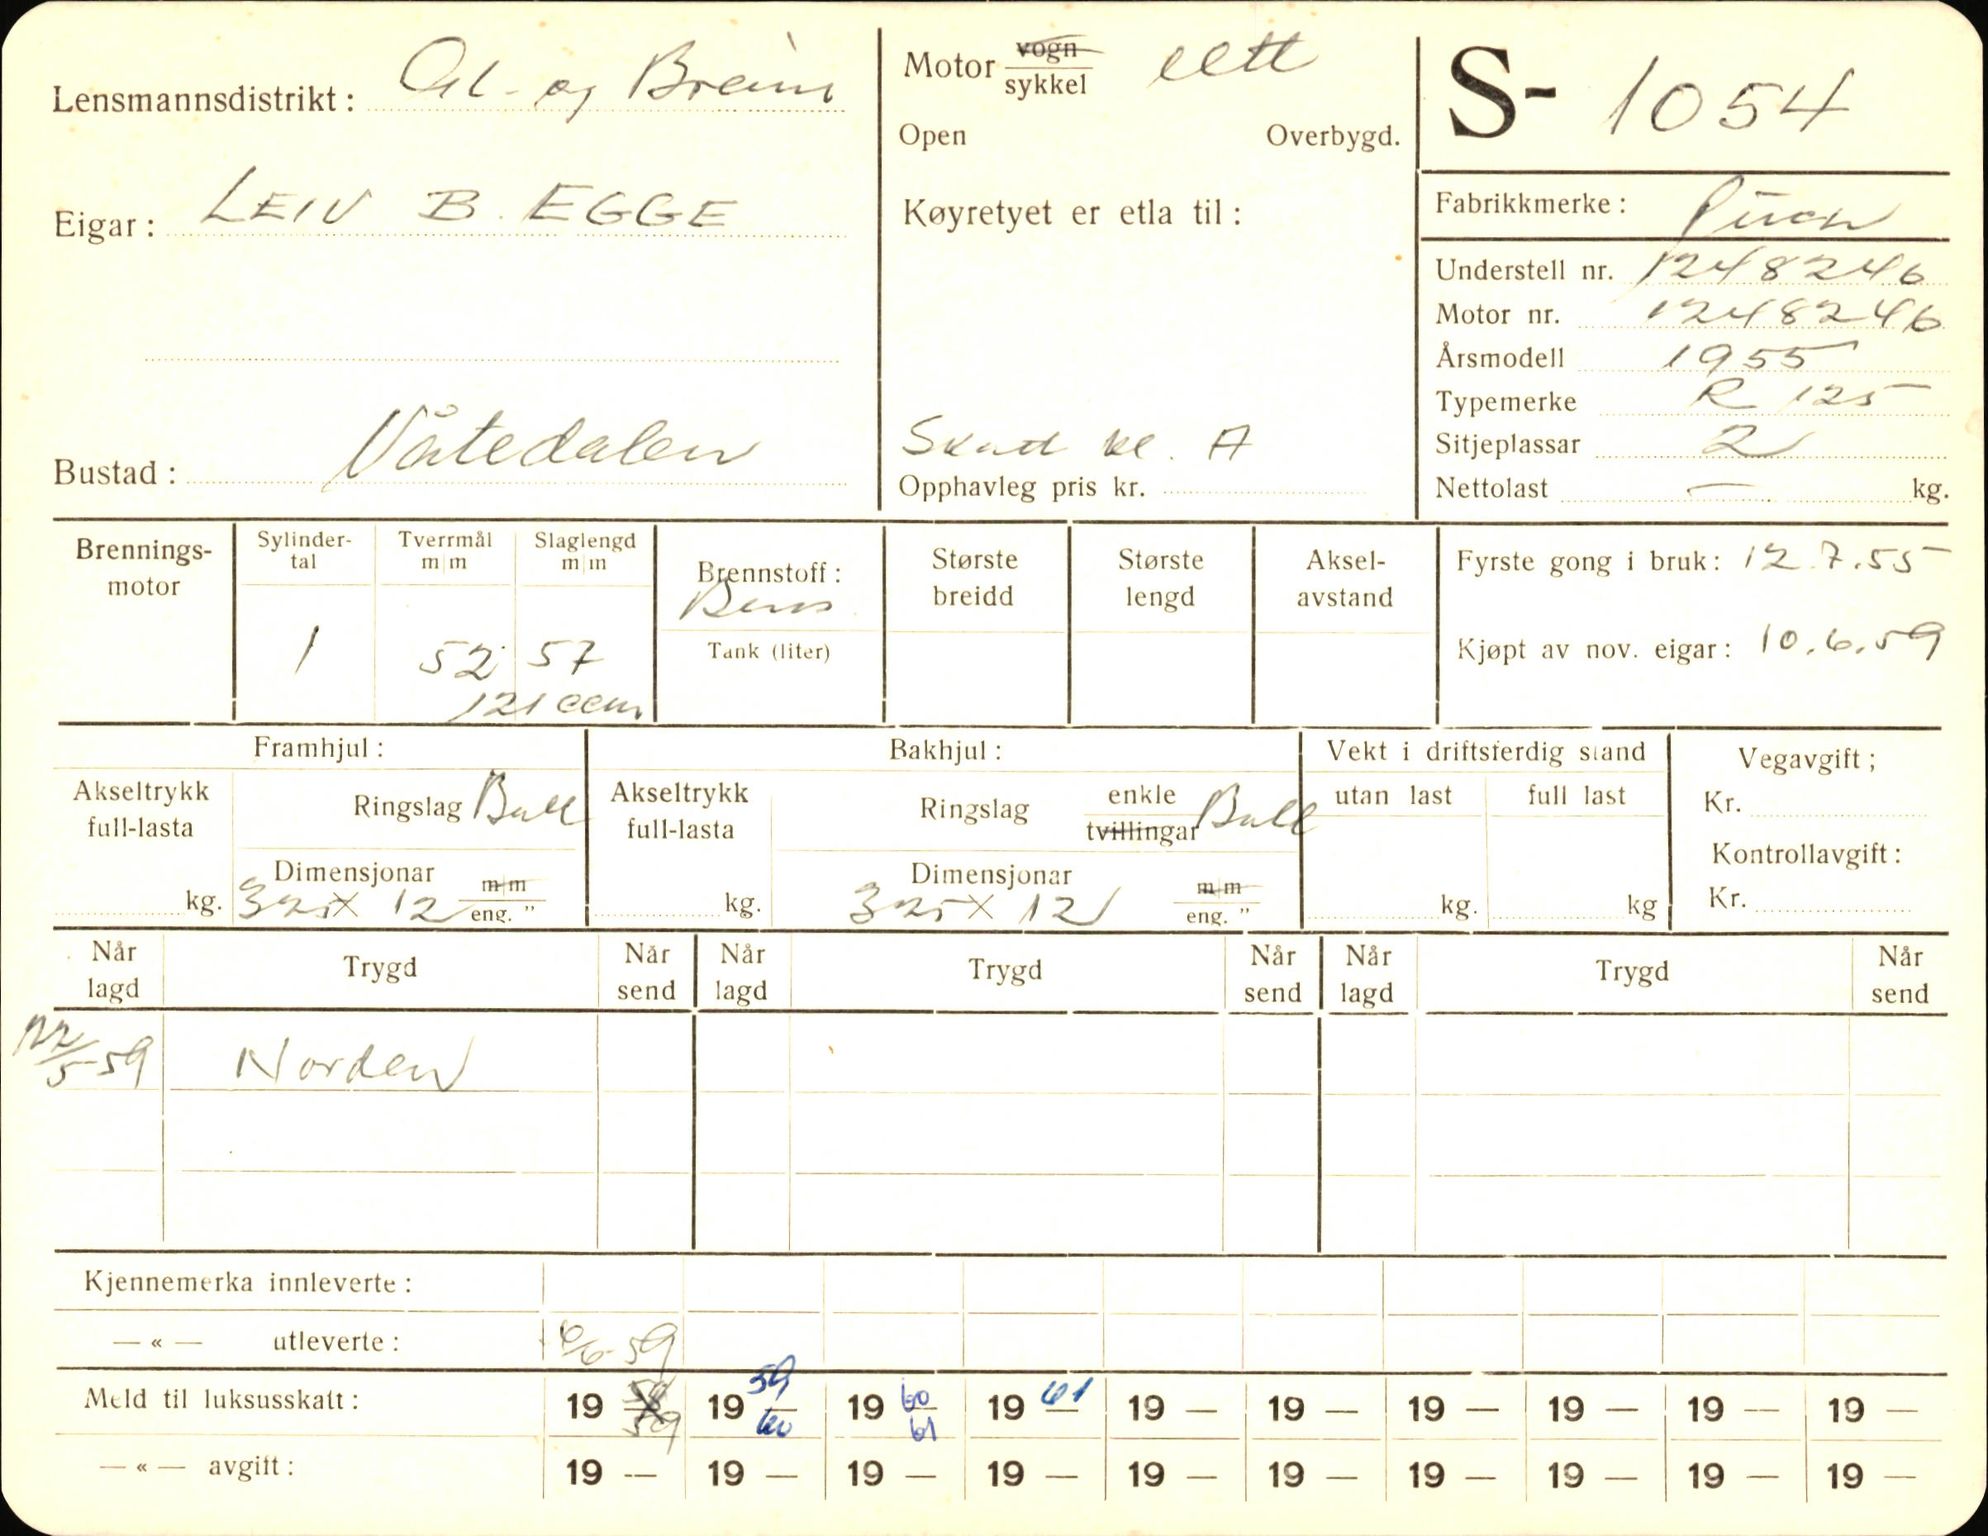 Lensmannsdistrikt: Gl.- og Breim
Eigar: LEIV B. EGGE
Bustad: Våtedalen
Motor vogn sykkel lett
Open Overbygd.
Køyretyet er etla til:
Skatt kl. A
Opphavleg pris kr.
S- 1054
Fabrikkmerke: Puch
Understell nr. 1248246
Motor nr. 1248246
Årsmodell 1955
Typemerke R 125
Sitjeplassar 2
Nettolast — kg.
Brennings-
motor
Sylinder-
tal
1
Tverrmål
m|m
52
Slaglengd
m|m
57
121 ccm
Brennstoff:
Bens
Tank (liter)
Største
breidd
Største
lengd
Aksel-
avstand
Fyrste gong i bruk: 12.7.55
Kjøpt av nov. eigar: 10.6.59
Framhjul:
Akseltrykk
full-lasta
kg.
Ringslag Ball
Dimensjonar
325 x 12 m|m eng. "
Bakhjul:
Akseltrykk
full-lasta
kg.
Ringslag enkle tvillingar Ball
Dimensjonar
325 x 12 m|m eng. "
Vekt i driftsferdig stand
utan last full last
kg. kg
Vegavgift;
Kr.
Kontrollavgift:
Kr.
Når
lagd
Trygd
Når
send
Når
lagd
Trygd
Når
send
Når
lagd
Trygd
Når
send
22/5-59 Norden
Kjennemerka innleverte:
— « — utleverte: 6/6-59
Meld til luksusskatt: 19 58/59 19 59/60 19 60/61 19 61 19 — 19 — 19 — 19 — 19 — 19 —
— « — avgift: 19 — 19 — 19 — 19 — 19 — 19 — 19 — 19 — 19 — 19 —